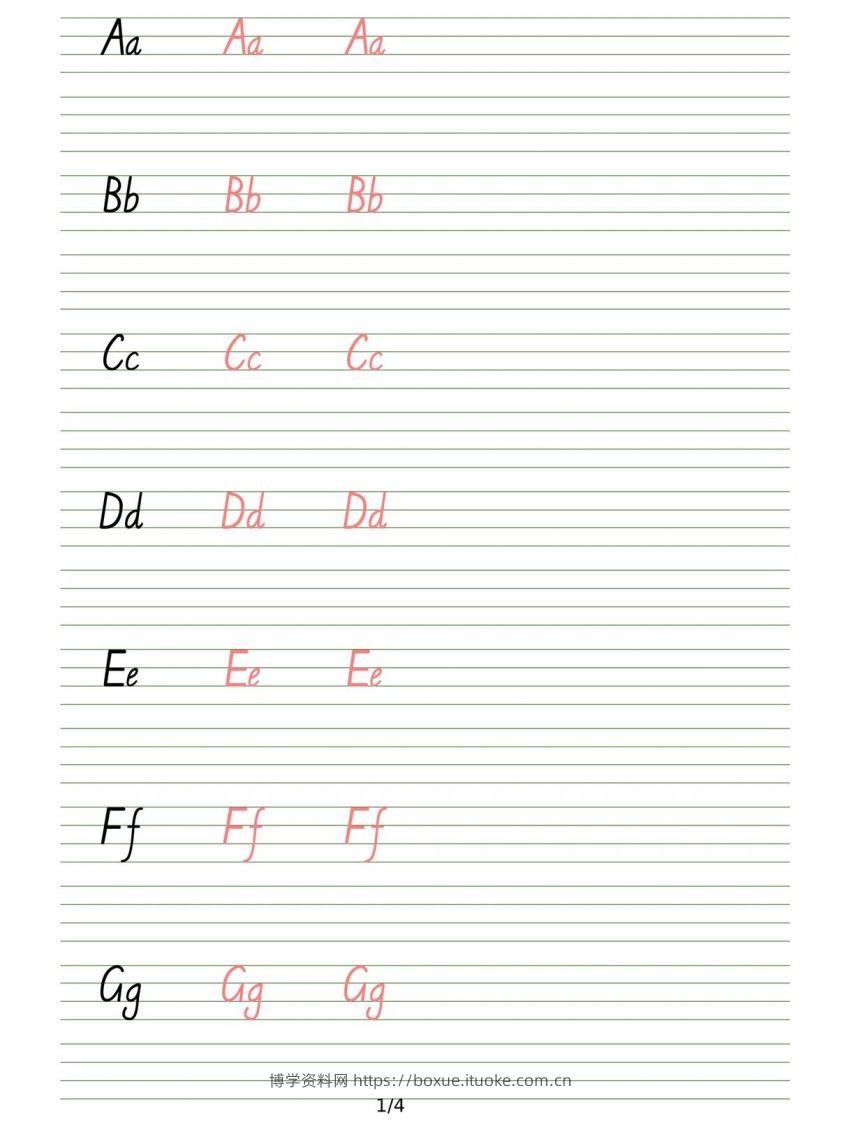 Aa Aa Aa
Bb Bb Bb
Cc Cc Cc
Dd Dd Dd
Ee Ee Ee
Ff Ff Ff
Gg Gg Gg
博学资料网 https://boxue.ituoke.com.cn
1/4